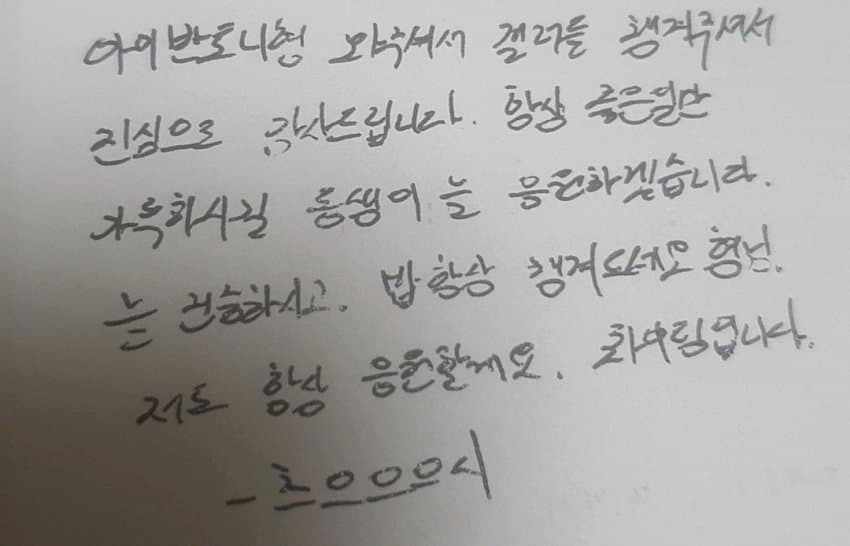 아이반토니형 와주셔서 걸러를 챙겨주셔서
진심으로 감사드립니다. 항상 좋은일만
가득하시길 동생이 늘 응원하겠습니다.
늘 건승하시고. 밥 항상 챙겨드세요 형님.
저도 항상 응원할게요. 화이팅입니다.
- 츠으으으시